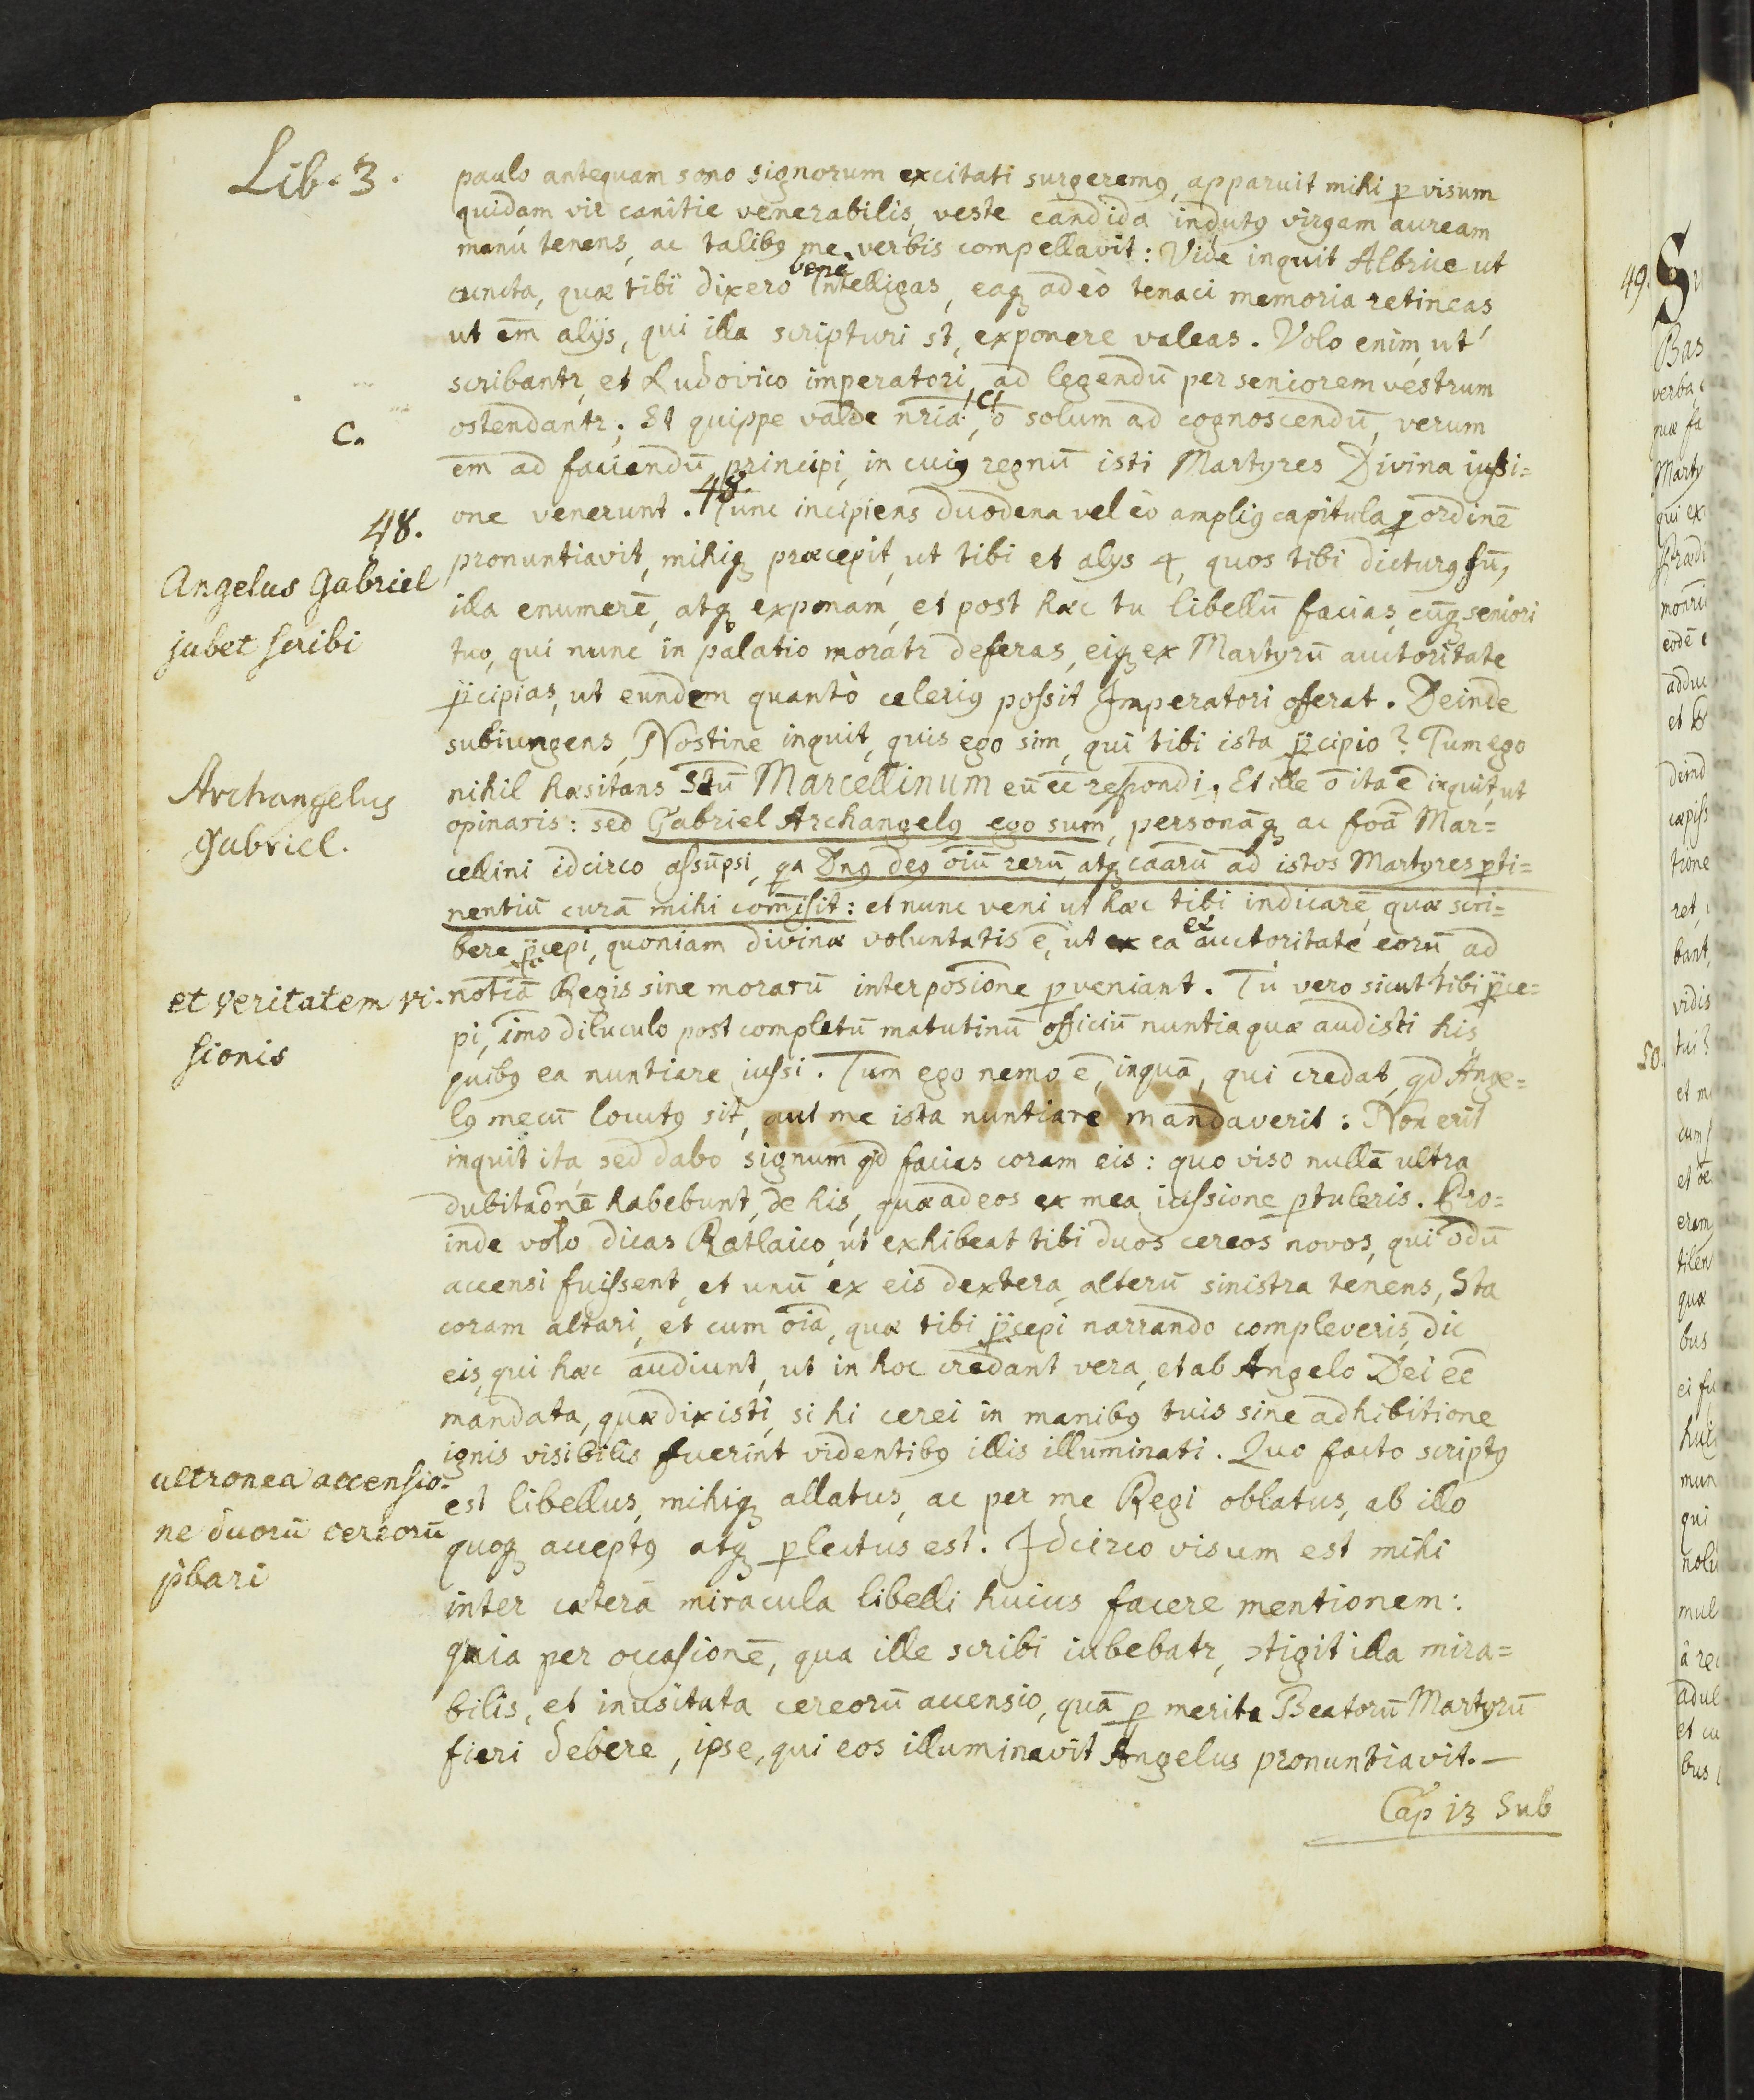 Lib. 3.
paulo antequam sono signorum excitati surgeremꝯ, apparuit mihi ꝑ visum
quidam vir canitie venerabilis, veste candida indutꝯ virgam auream
manu tenens, ac talibꝯ me verbis compellavit: Vide inquit Albrice ut
cuncta, quæ tibi dixero benè intelligas, eaqꝫ adeò tenaci memoria retineas
ut em̄ alijs, qui illa scripturi st̄, exponere valeas. Volo enim ut
scribantr, et Ludovico imperatori, ad legendū per seniorem vestrum
ostendantr. St quippe valde nr̄ia C, ō solum ad cognoscendū, verum
C.
em̄ ad faciendū principi, in cuiꝯ regnū isti Martyres Divina iussi=
one venerunt. 48. Tunc incipiens duodena vel eò ampliꝯ capitula ꝑ ordinē
48.
pronuntiavit, mihiqꝫ præcepit, ut tibi et alys 4, quos tibi dicturꝯ sū,
Angelus Gabriel
jubet scribi
illa enumerē, atqꝫ exponam, et post hæc tu libellū facias, eūqꝫ seniori
tuo, qui nunc in palatio moratr deferas, eiqꝫ ex Martyrū auctoritate
p̄cipias, ut eundem quantò celeriꝯ possit Imperatori offerat. Deinde
subiungens, Nostine inquit, quis ego sim, qui tibi ista p̄cipio? Tum ego
nihil hæsitans Stū Marcellinum eū ēē respondi. Et ille ō ita ē inquit, ut
Archangelus
Gabriel.
opinaris: sed Gabriel Archangelꝯ ego sum, personāqꝫ ac foā Mar=
cellini idcirco assūpsi, qa Dnꝯ deꝯ oiū rerū, atqꝫ caarū ad istos Martyres ꝑti=
nentiū curā mihi com̄isit: et nunc veni ut hæc tibi indicarē, quæ scri=
bere p̄cepi, quoniam divinæ voluntatis ē, ut ex ea ex auctoritate eorū, ad
et veritatem vi-
sionis
notiā Regis sine morarū interposione ꝑveniant. Tu vero sicut tibi p̄ce=
pi, imo diluculo post completū matutinū officiū nuntia quæ audisti his
quibꝯ ea nuntiare iussi. Tum ego nemo ē, inquā, qui credat, qd Ange=
lꝯ mecū locutꝯ sit, aut me ista nuntiare mandaverit: Non erit
inquit ita, sed dabo signum qd facias coram eis: quo viso nullā ultra
dubitaōnē habebunt, de his, quæ ad eos ex mea iussione ꝑtuleris. Pro=
inde volo dicas Ratlaico, ut exhibeat tibi duos cereos novos, qui ōdū
accensi fuissent, et unū ex eis dextera, alterū sinistra tenens, Sta
coram altari, et cum oīa, quæ tibi p̄cepi narrando compleveris, dic
eis, qui hæc audiunt, ut in hoc credant vera, et ab Angelo Dei ēē
mandata, quæ dixisti, si hi cerei in manibꝯ tuis sine adhibitione
ignis visibilis fuerint videntibꝯ illis illuminati. Quo facto scriptꝯ
ultronea accensio-
ne duorū cereorū
p̄bari
est libellus, mihiqꝫ allatus, ac per me Regi oblatus, ab illo
quoqꝫ acceptꝯ atqꝫ ꝑlectus est. Idcirco visum est mihi
inter cætera miracula libelli huius facere mentionem:
quia per occasionē, qua ille scribi iubebatr, ↄtigit illa mira=
bilis, et inusitata cereorū accensio, quā ꝑ merita Beatorū Martyrū
fieri debere, ipse, qui eos illuminavit Angelus pronuntiavit.—
Cap 13 Sub
49. Su
Bas
verba
quæ fa
Marty
qui ex
Prædi
monri
eodē
adduc
et
deind
cæpiss
tione
ret,
bant,
vidis
50. tui?
et m
cum
et
eram
tilen
quæ
bus
ei fu
huiꝯ
mun
qui
nolu
mul
à re
adul
et cu
bus